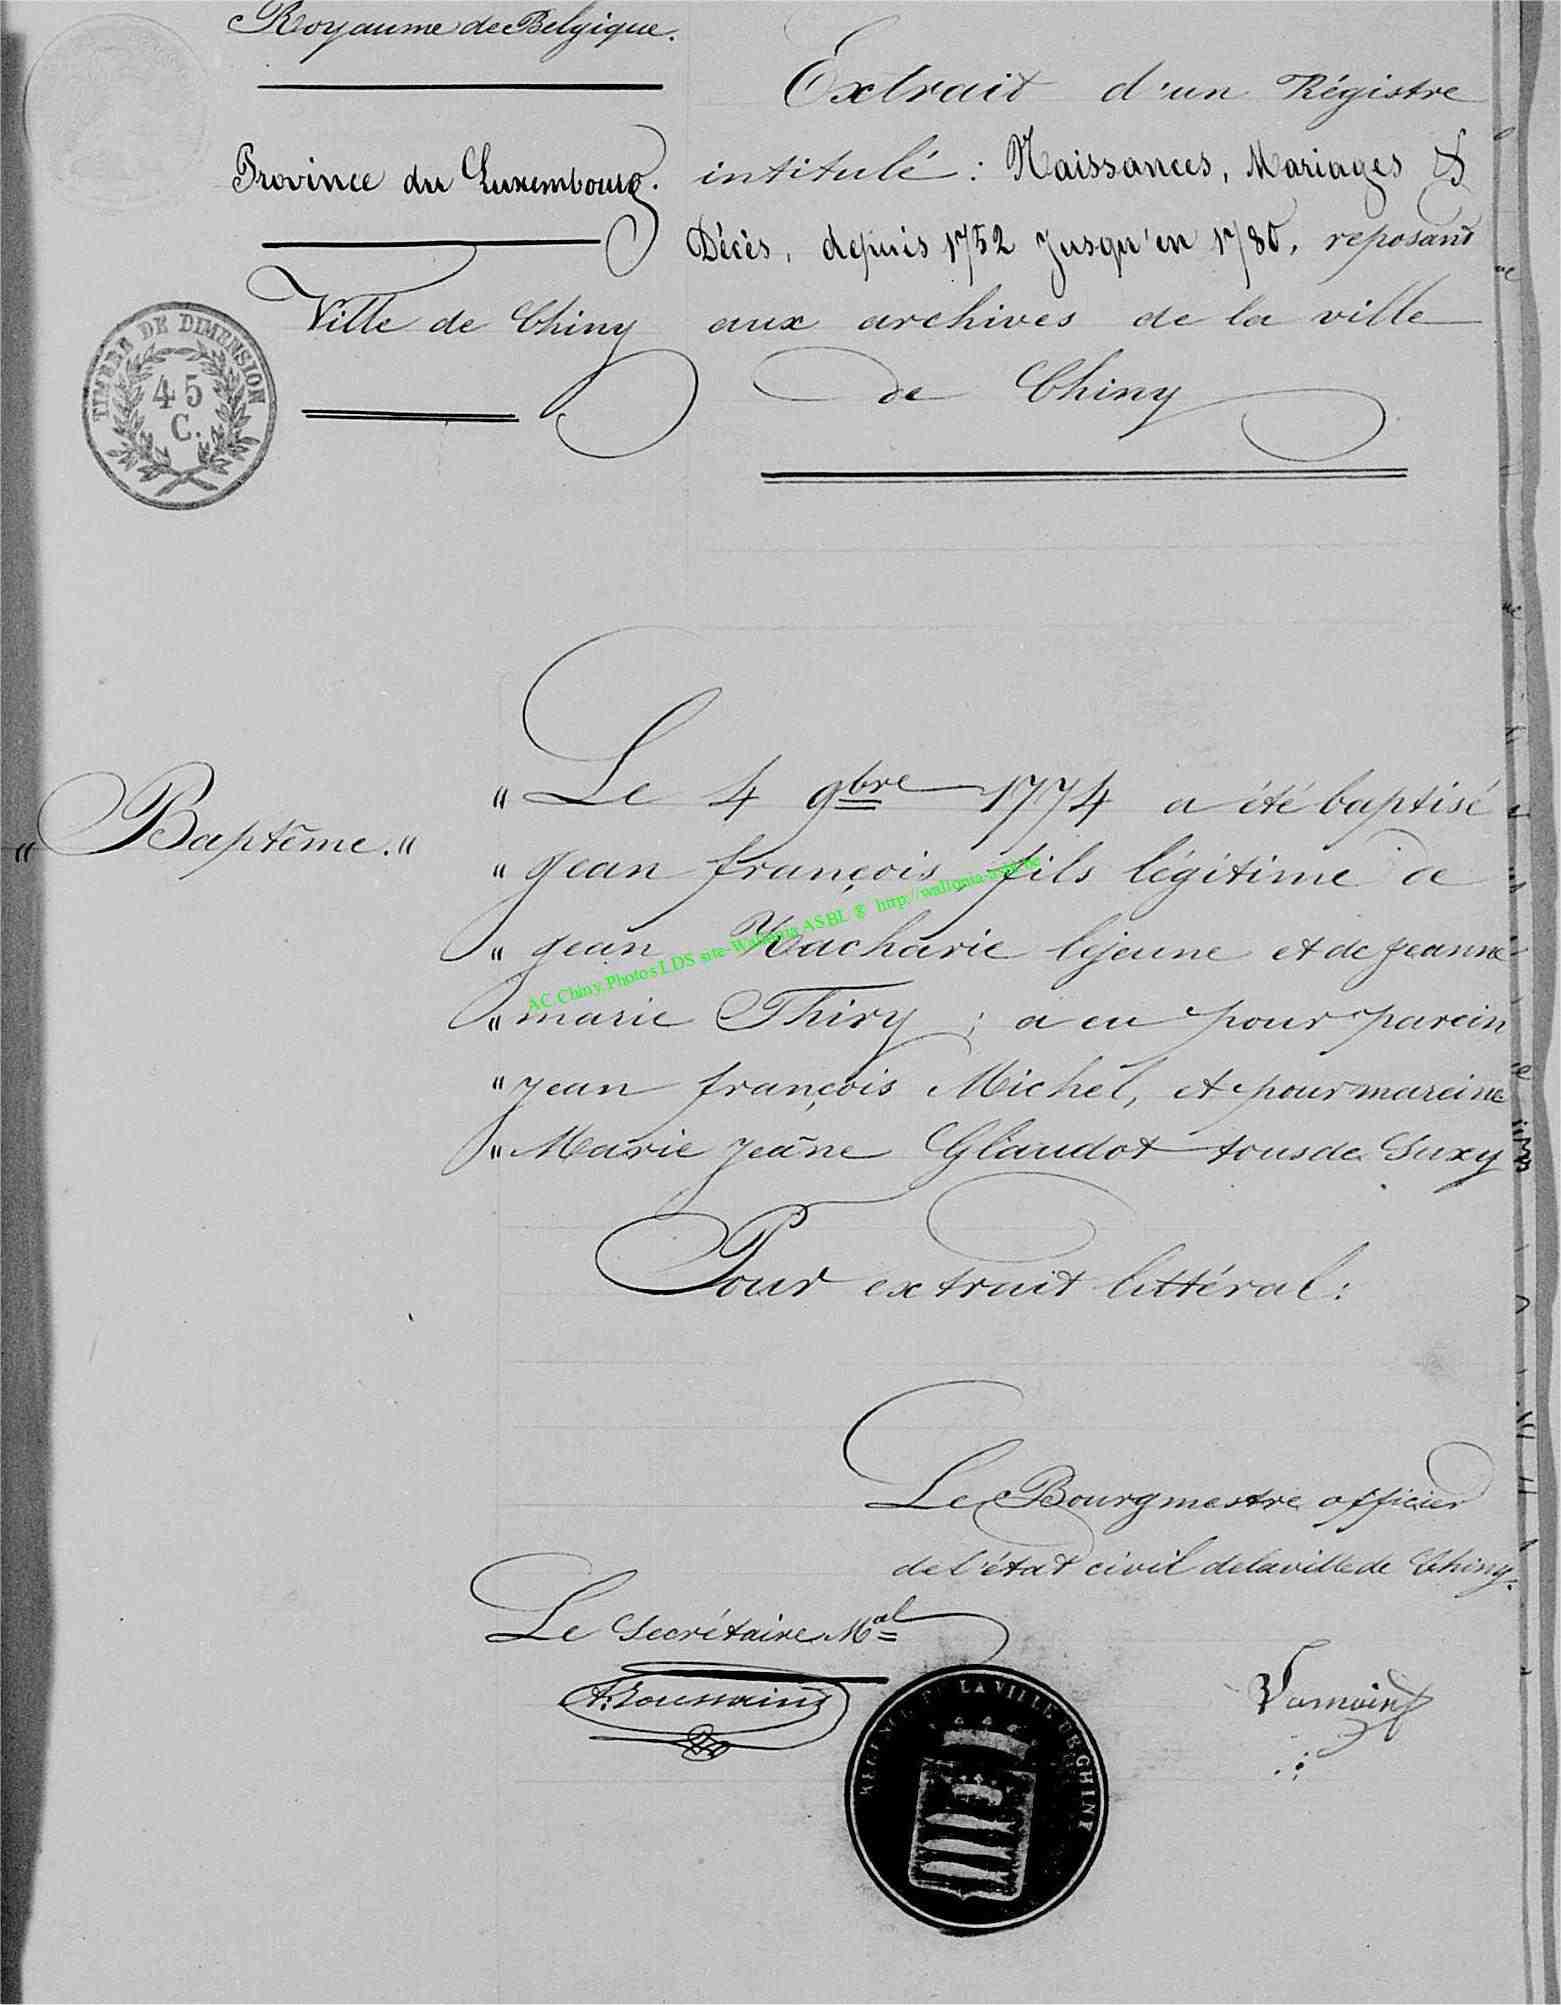 Royaume de Belgique.
Province du Luxembourg.
Ville de Chiny
TIMBRE DE DIMENSION
45
C.
Extrait d'un Régistre
intitulé : Naissances, Mariages &
Décès, depuis 1752 jusqu'en 1780, reposant
aux archives de la ville
de Chiny
"Baptême."
"Le 4 9bre 1774 a été baptisé
"jean françois, fils légitime de
"jean Zacharie lejeune et de jeanne
"marie Thiry ; a eu pour parein
"jean françois Michel, et pour mareine
"Marie jeãne Glaudot tous de Suxy
AC Chiny, Photos LDS site-Wallonia ASBL © http://wallonia-asbl.be
Pour extrait littéral :
Le Bourgmestre officier
de l'état civil de la ville de Chiny.
Le Secrétaire Mal
REGENCE DE LA VILLE DE CHINI